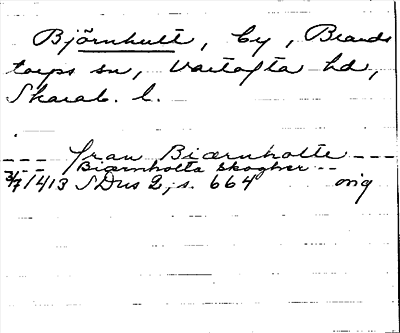 Björnhult, by, Brands
torps sn, Vartofta hd,
Skarab. l.
fran Biærnholte
Biærnholta skogher
3/7 1413 SDns 2, s. 664 orig